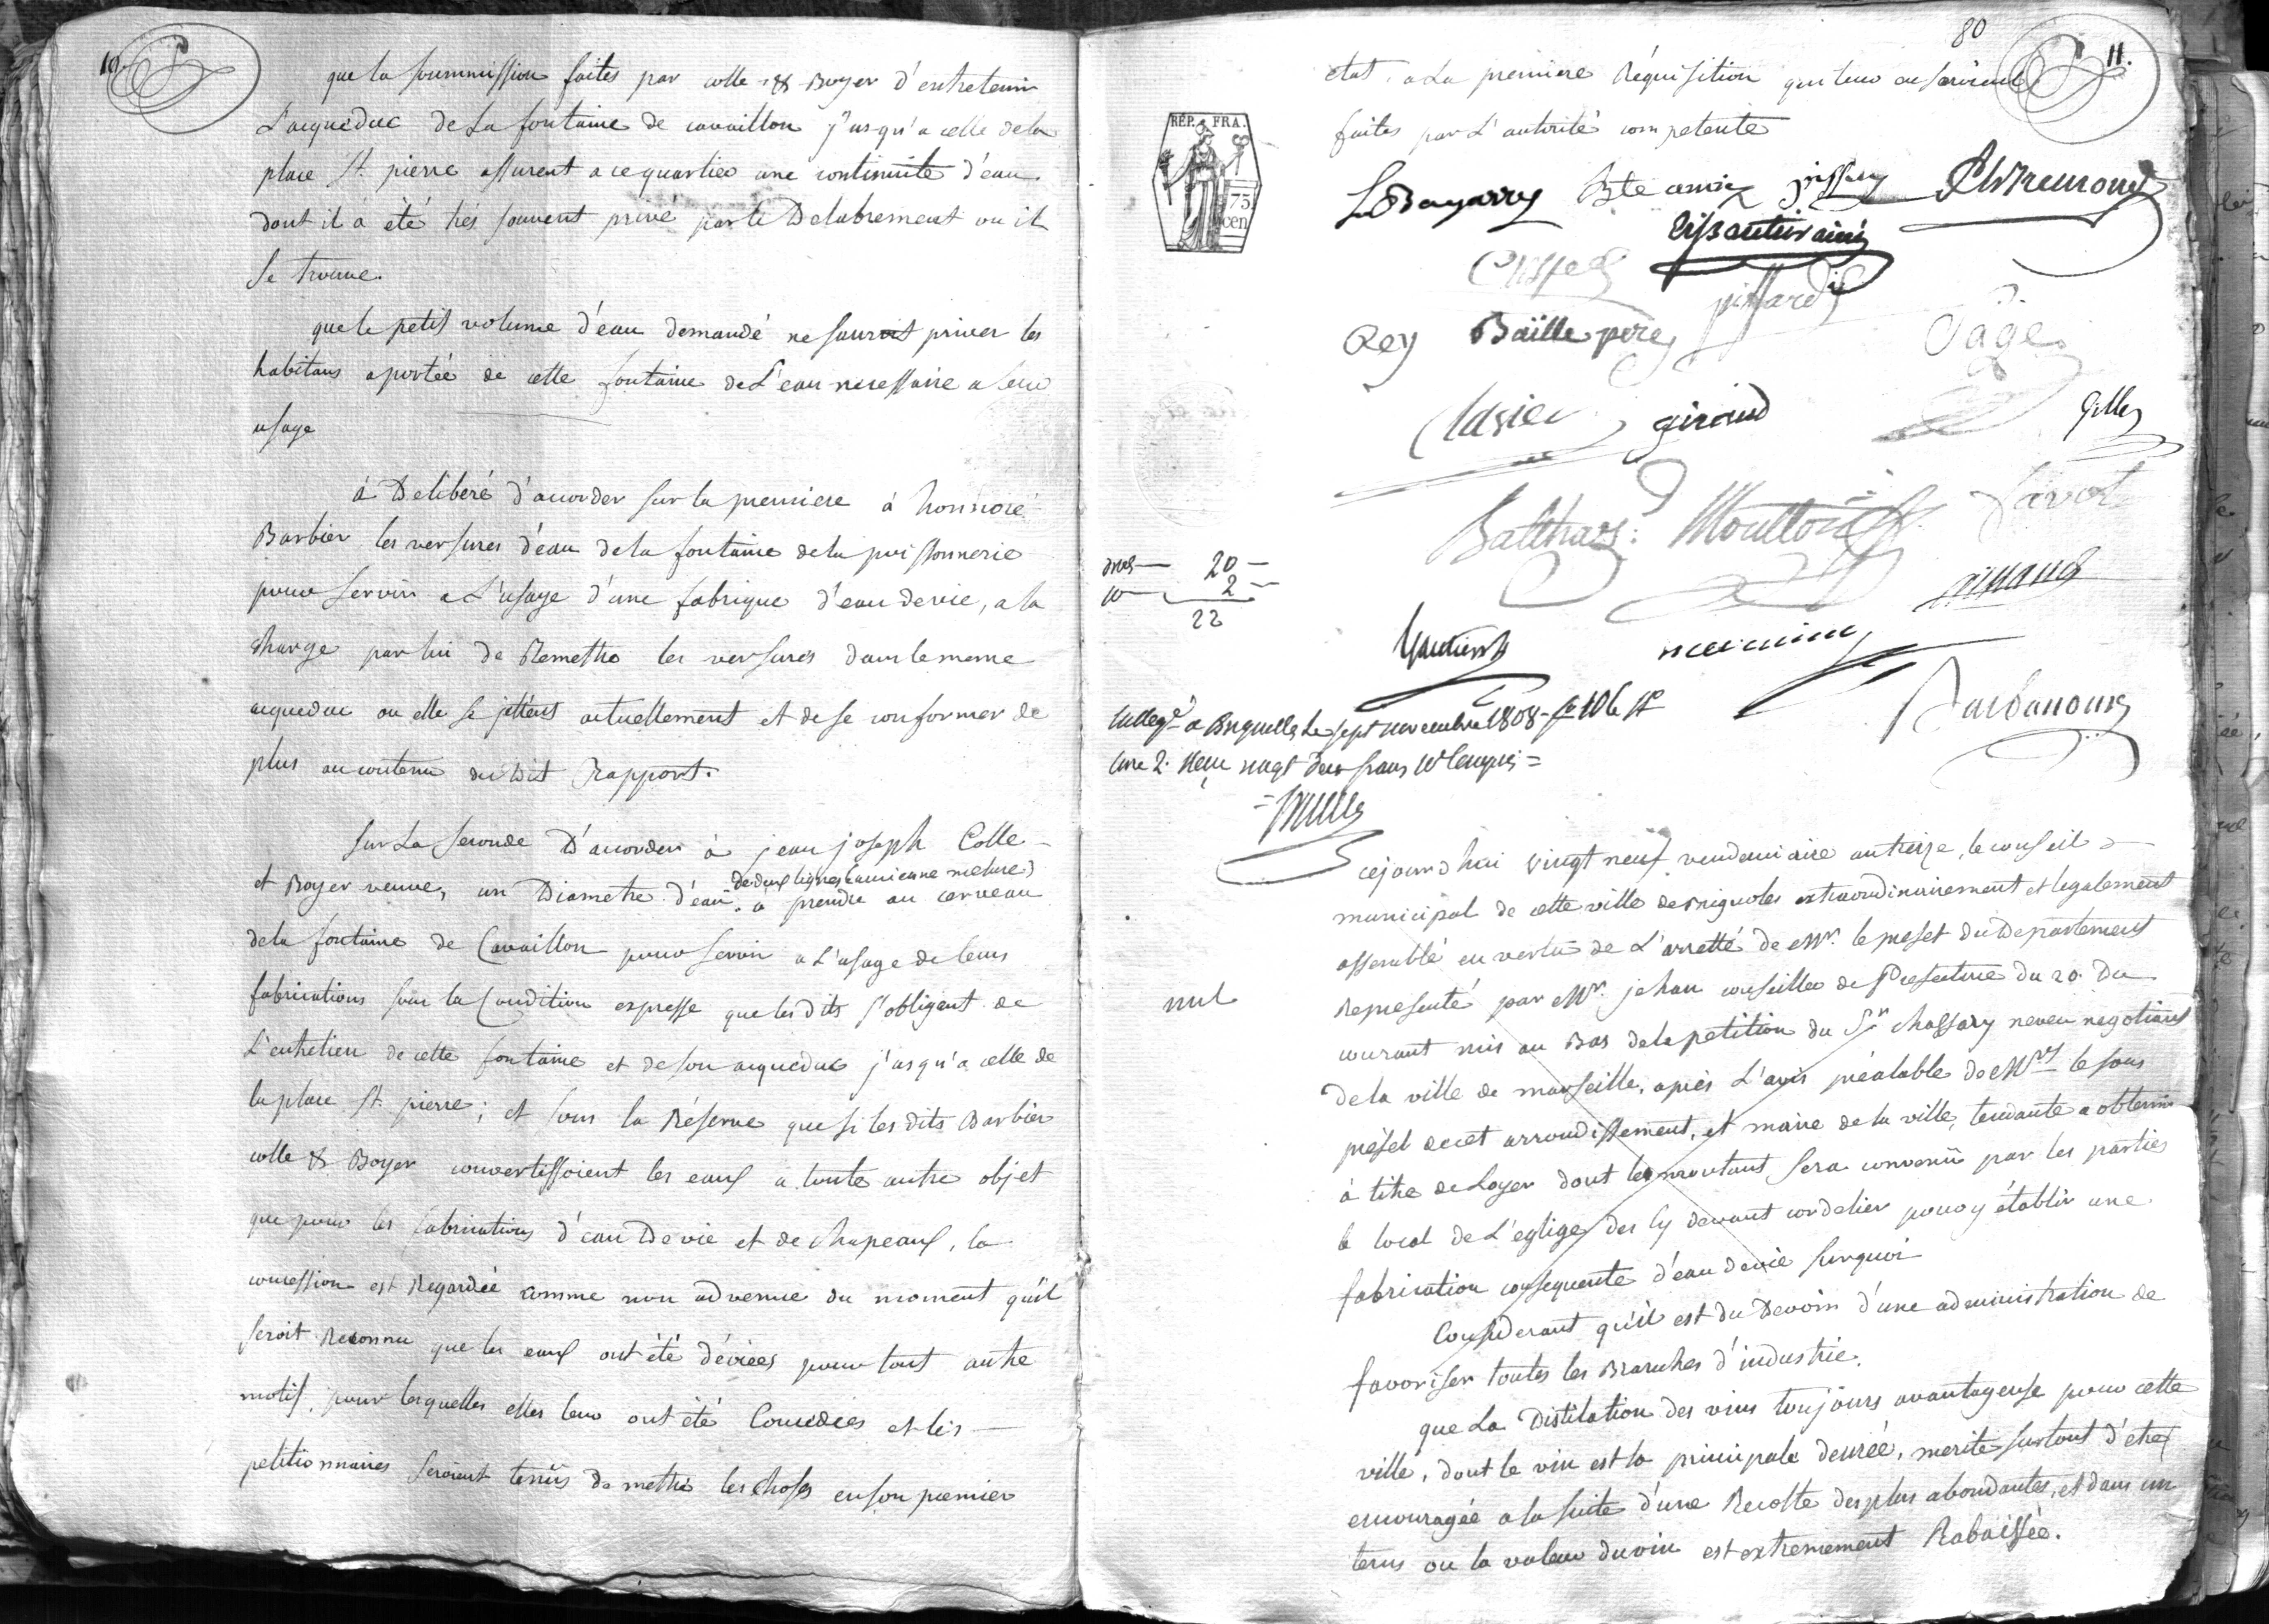 10.
que la soummission faites par colle & Boyer d'entretenir
L'acqueduc de La fontaine de cavaillon j'usqu'a celle dela
place St. pierre assurent a ce quartier une continuité d'eau
dont il à été trés souvent privé par le Delabrement ou il
se trouve.
que le petit volume d'eau demandé ne sauroit priver les
habitans aportée de cette fontaine de L'eau necessaire a leur
usage
à Delibéré d'accorder sur la premiere à honnoré
Barbier les versures d'eau dela fontaine dela poissonnerie
pour servir a L'usage d'une fabrique d'eau de vie, a la
charge par lui de Remettre les versures dans le meme
acqueduc ou elle se jettent actuellement et de se conformer de
plus au contenu du Dit Rapport.
Sur La seconde D'accorder à jean joseph Colle
de deux lignes (ancienne mesure)
et Boyer veuve, un Diametre d'eau, à prendre au cerveau
dela fontaine de Cavaillon pour servir a L'usage de leurs
fabrications sous la Condition expresse que les dits s'obligent de
L'entretien de cette fontaine et de son acqueduc j'usqu'a celle de
la place St. pierre; et sous la Réserve que si les dits Barbier
colle & Boyer convertissoient les eaux a toute autre objet
que pour les fabrications d'eau De vie et de chapeaux, la
concession est Regardée comme non advenue du moment qu'il
seroit Reconnu que les eaux ont été déviées pour tout autre
motif pour lesquelles elles leur ont été Concedées et les
petitionnaires seroient tenüs de mettre les choses en son premier
80
11.
etat a La premiere Réquisition qui leur en seroient
faites par L'autorité competente
RÉP. FRA.
75
cen
Rey Baille pere pissard Page
Clasier giraud Gilles
Balthazs: Moutton Lavot
20
2
22
Gautier
Bardanoure
a Brignolles le sept novembre 1808
Cejourd'hui vingt neuf vendemiaire an treize, le conseil
municipal de cette ville de Brignoles extraordinairement et legalement
assemblé en vertu de L'arretté de Mr. le prefet du Departement
nul
Representé par Mr. jehan conseiller de Prefecture du 20. Du
courant mis au Bas dela petition du Sr chassary neveu negotiant
De la ville de marseille, après L'avis préalable de Mrs le sous
préfet de cet arrondissement, et maire de la ville, tendante a obtenir
à titre de Loyer dont le montant sera convenü par les parties
le local de L'eglise des cy devant cordelier pour y établir une
fabrication consequente d'eau de vie surquoi
Considerant qu'il est du Devoir d'une administration de
favoriser toutes les Branches d'industrie.
que La Distilation des vins toujours avantageuse pour cette
ville, dont le vin est la principale denrée, merite surtout d'etre
encouragée a la suite d'une Recolte des plus abondantes, et dans un
tems ou la valeur du vin est extremement Rabaissée.